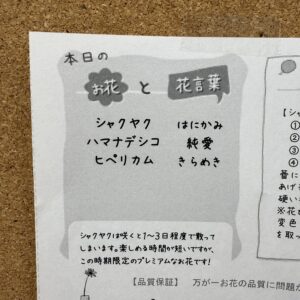 本日の
お花 と 花言葉
シャクヤク はにかみ
ハマナデシコ 純愛
ヒペリカム きらめき
シャクヤクは咲くと1〜3日程度で散って
しまいます。楽しめる時間が短いですが、
この時期限定のプレミアムなお花です!
【品質保証】 万が一お花の品質に問題が
【シャ
①
②
③
④
蕾に
あげ
硬い
※花
変色
を取っ